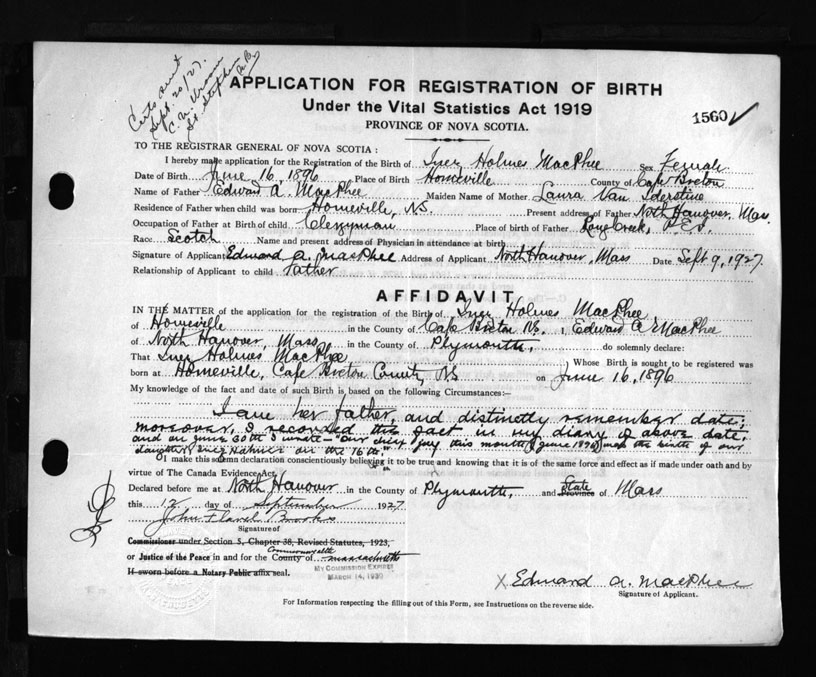 Certs sent
Sept. 20/27.
C. W. Vroom
St. Stephen
N.B.
APPLICATION FOR REGISTRATION OF BIRTH
Under the Vital Statistics Act 1919
1560
PROVINCE OF NOVA SCOTIA.
TO THE REGISTRAR GENERAL OF NOVA SCOTIA:
I hereby make application for the Registration of the Birth of Inez Holmes MacPhee Sex Female
Date of Birth June 16, 1896 Place of Birth Homeville County of Cape Breton
Name of Father Edward A. MacPhee Maiden Name of Mother Laura Van Iderstine
Residence of Father when child was born Homeville, N.S. Present address of Father North Hanover, Mass.
Occupation of Father at Birth of child Clergyman Place of birth of Father Long Creek, P.E.I.
Race Scotch Name and present address of Physician in attendance at birth
Signature of Applicant Edward A. MacPhee Address of Applicant North Hanover, Mass Date Sept 9, 1927.
Relationship of Applicant to child Father
AFFIDAVIT
IN THE MATTER of the application for the registration of the Birth of Inez Holmes MacPhee
of Homeville in the County of Cape Breton N.S. I, Edward A. MacPhee
of North Hanover, Mass in the County of Plymouth, do solemnly declare:
That Inez Holmes MacPhee Whose Birth is sought to be registered was
born at Homeville, Cape Breton County, N.S on June 16, 1896
My knowledge of the fact and date of such Birth is based on the following Circumstances:—
I am her father, and distinctly remember date;
moreover, I recorded the fact in my diary of above date,
and on June 30th I wrote— "Our chief joy this month (June 1896) was the birth of our
daughter Inez Holmes on the 16th."
I make this solemn declaration conscientiously believing it to be true and knowing that it is of the same force and effect as if made under oath and by
virtue of The Canada Evidence Act.
Declared before me at North Hanover in the County of Plymouth, and State Province of Mass
this 12 day of September 1927
John Flavel Brooks
Signature of
Commissioner under Section 5, Chapter 38, Revised Statutes, 1923,
or Justice of the Peace in and for the County of Commonwealth Massachusetts
If sworn before a Notary Public affix seal.
MY COMMISSION EXPIRES
MARCH 14, 1930
X Edward A. MacPhee
Signature of Applicant.
For Information respecting the filling out of this Form, see Instructions on the reverse side.